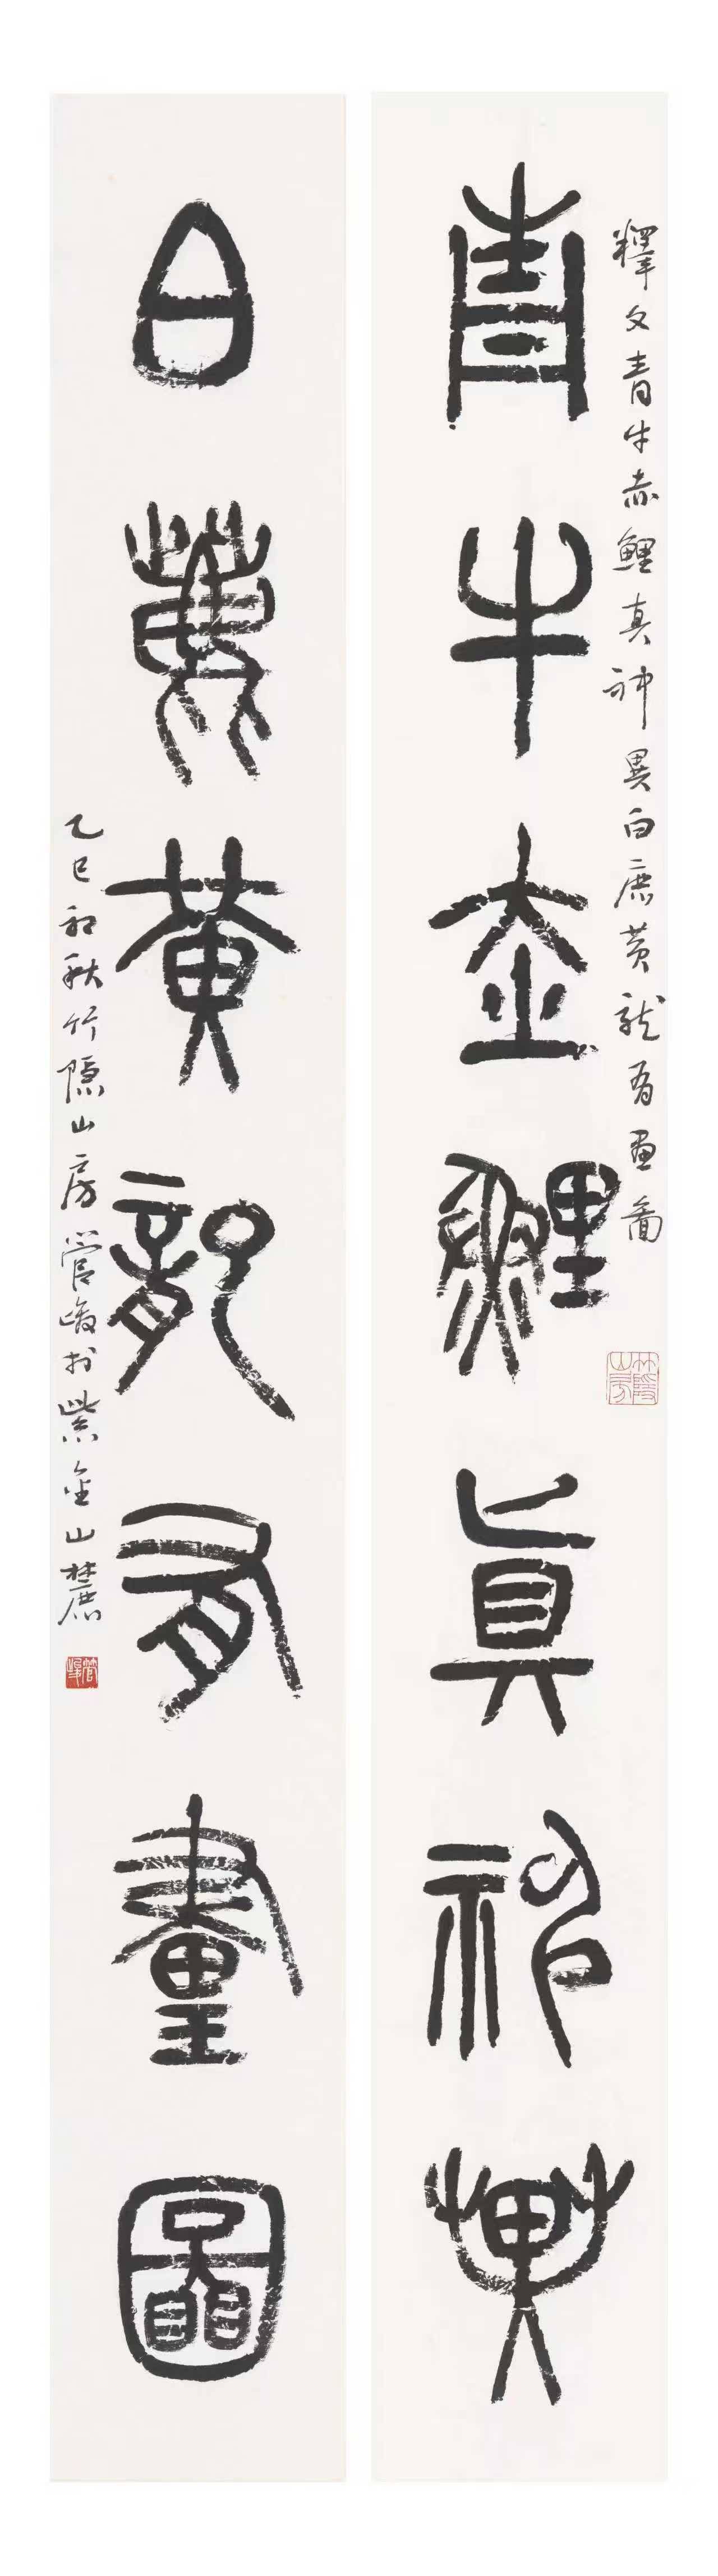 釋文青牛赤鯉真神異白鹿黃龍有畫圖
青牛赤鯉真神異
竹隱山房
白鹿黃龍有畫圖
乙巳初秋竹隱山房管峻於紫金山麓
管峻